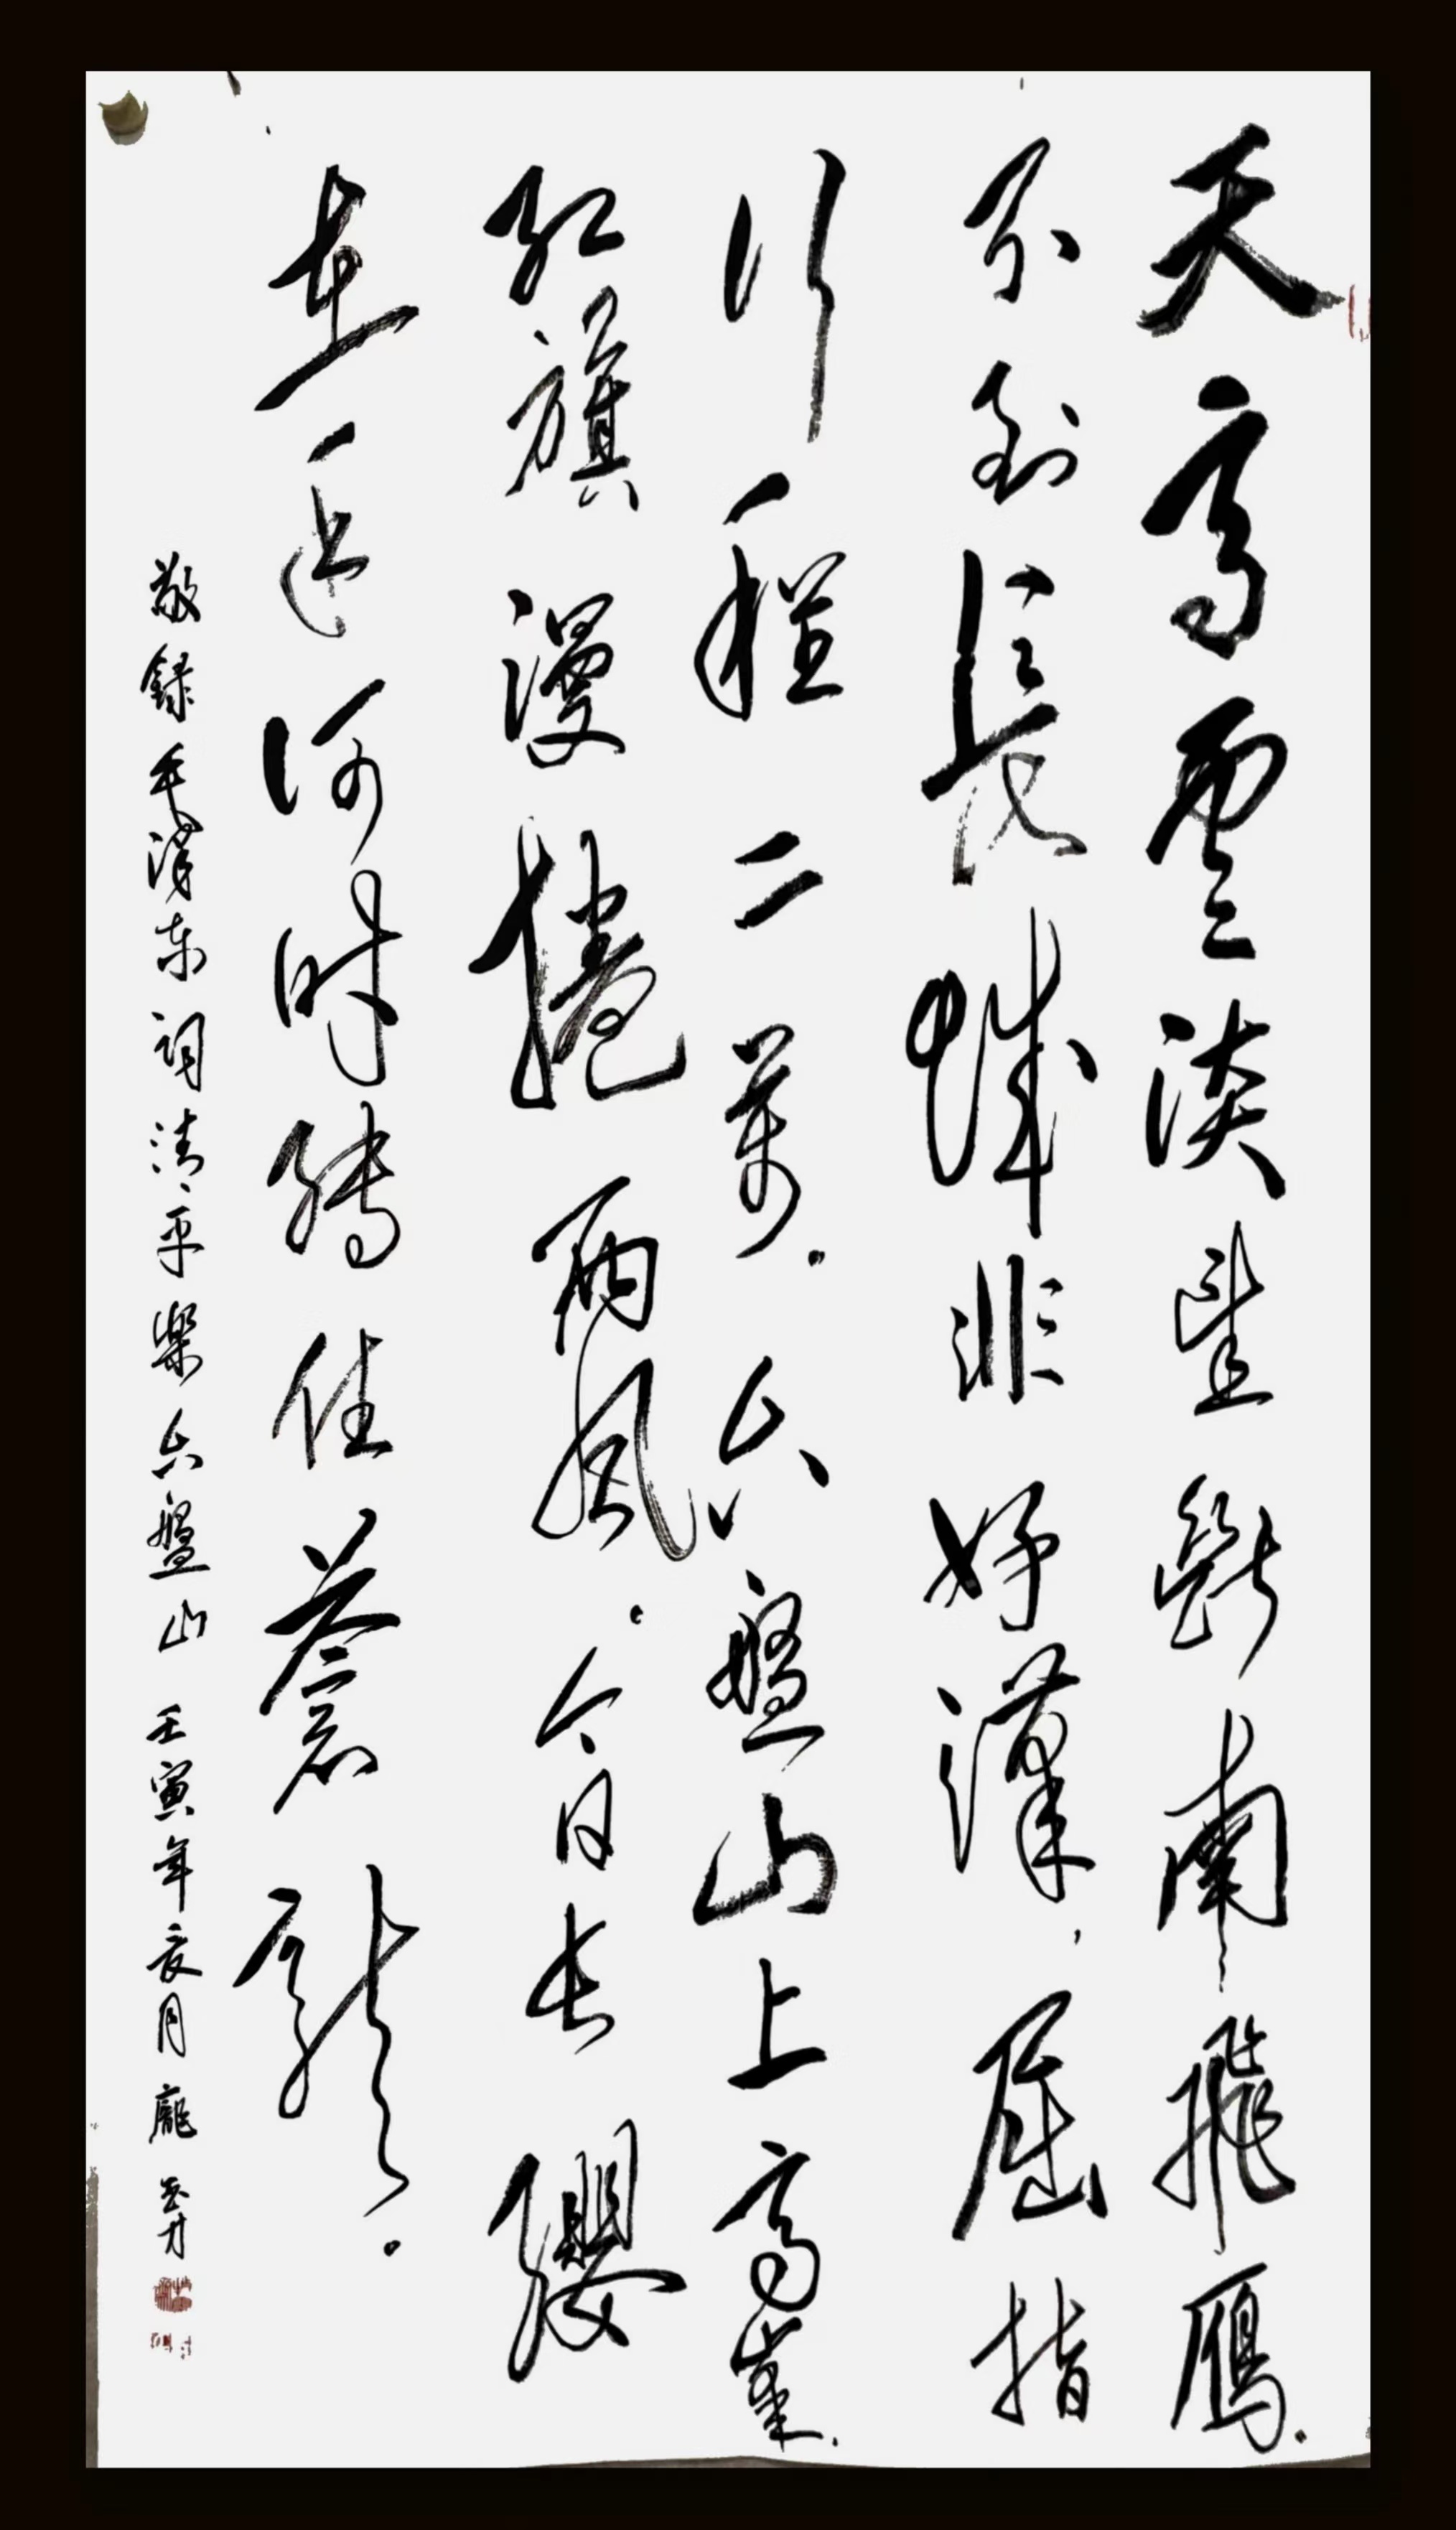 天高雲淡望斷南飛雁.
不到長城非好漢,屈指
行程二萬.六盤山上高峯.
紅旗漫捲西風.今日长纓
在手何時縛住蒼龍.
敬録毛澤東詞清平樂六盤山 壬寅年亥月龐